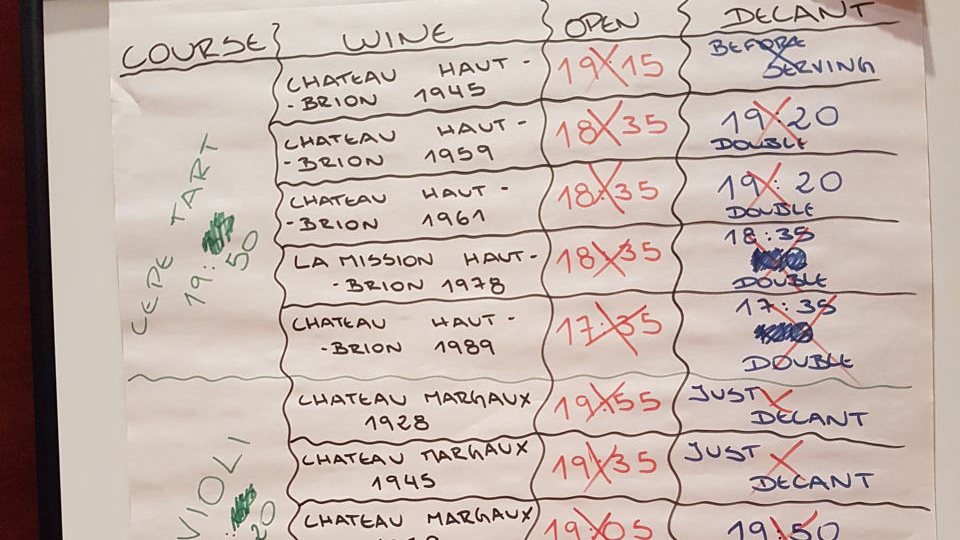 COURSE WINE OPEN DECANT
CHATEAU HAUT - 19:15 BEFORE
- BRION 1945 SERVING
CHATEAU HAUT - 18:35 19:20
- BRION 1959 DOUBLE
CHATEAU HAUT - 18:35 19:20
- BRION 1961 DOUBLE
CEPE TART
19: 50
LA MISSION HAUT - 18:35 18:35
- BRION 1978 DOUBLE
CHATEAU HAUT - 17:35 17:35
- BRION 1989 DOUBLE
CHATEAU MARGAUX 19:55 JUST
1928 DECANT
CHATEAU MARGAUX 19:35 JUST
1945 DECANT
VIOLI
20
CHATEAU MARGAUX 19:05 19:50